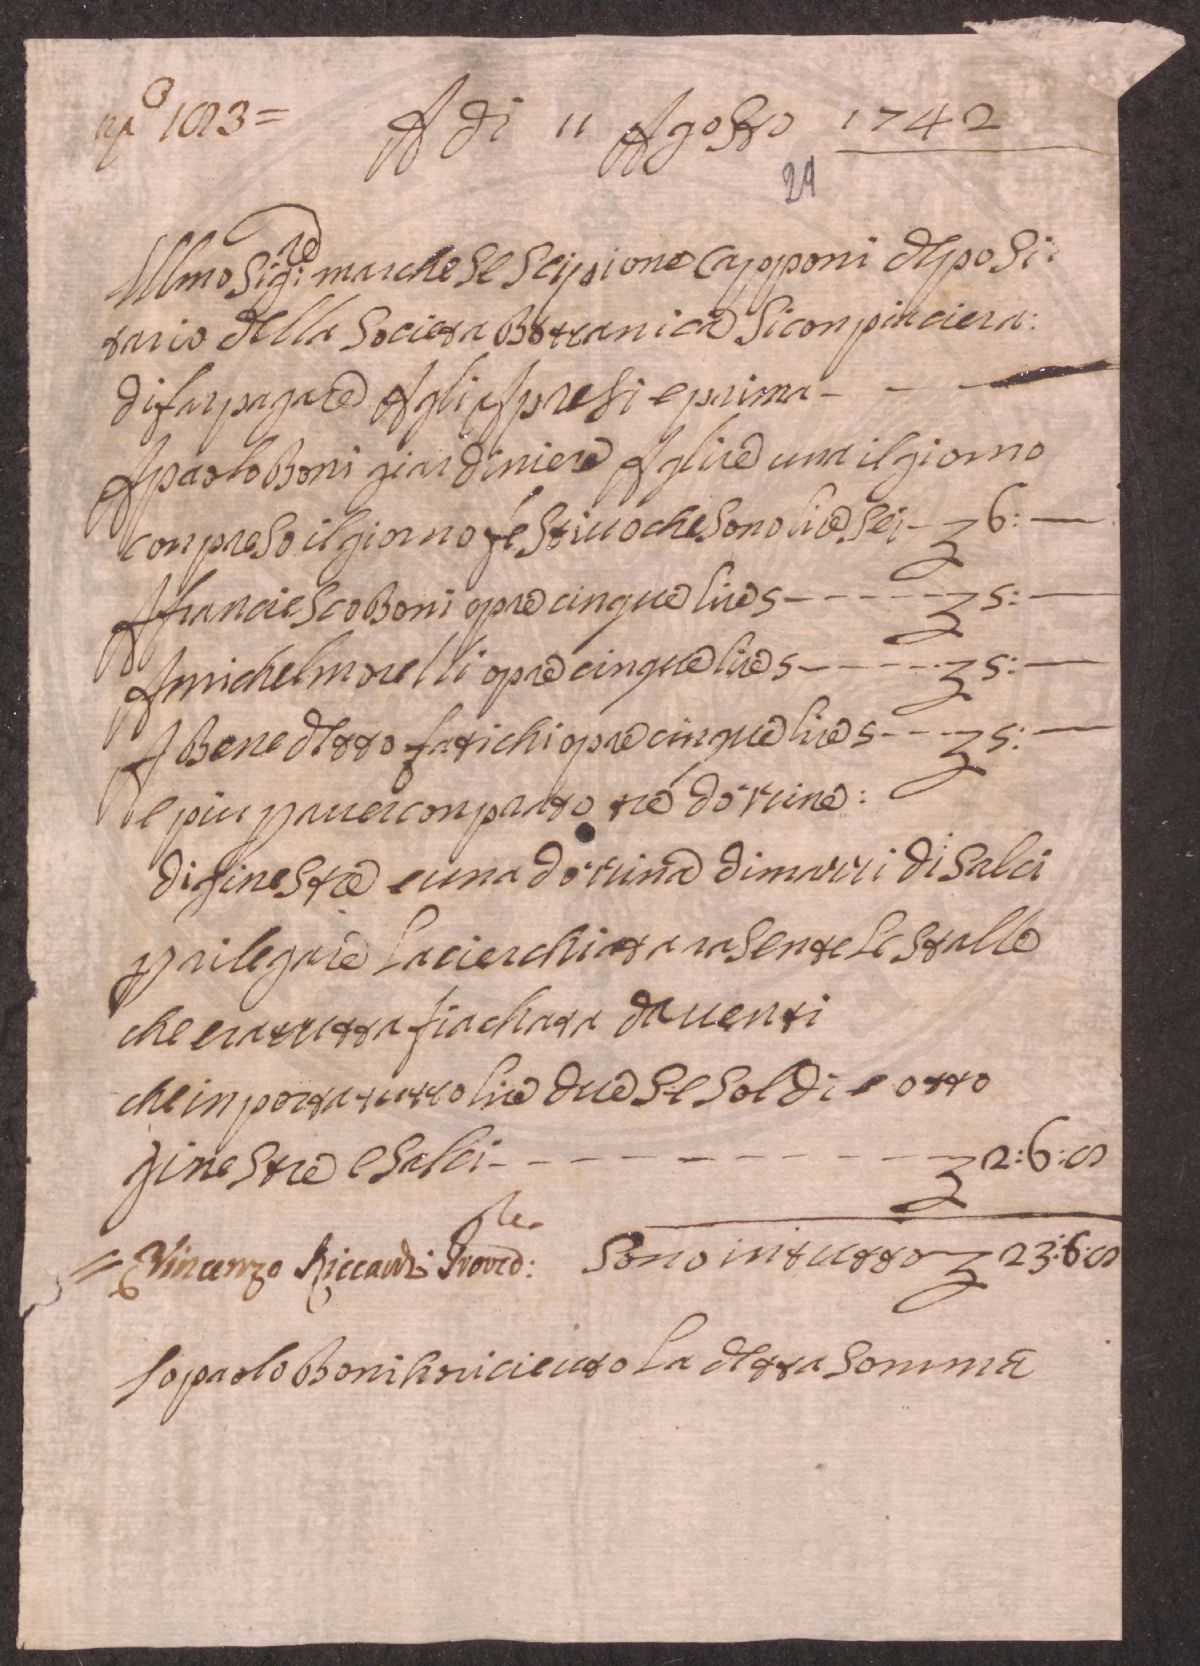 nº 1013=
A di 11 Agosto 1742
29
Illmo Sigre: marchese Scipione Capponi deposi:
tario della Societa Bottanica Si conpiaciera:
di far pagare Agli Apresi e prima -
A paolo Boni giardiniere A lire una il giorno
conpreso il giorno festiuo che sono lire sei - 6: —
A franciesco Boni opre cinque lire 5 - - - - - 5: —
A michel morelli opre cinque lire 5 - - - - - 5: —
A Benedetto fatichi opre cinque lire 5 - - - 5: —
e piu p auer conprato tre dozzine:
di ginestre e una dozzina di mazzi di Salci
p rilegare La cierchiata rasente Le stalle
che era tutta fiachata da uenti
che inporta tutto lire due S-e Soldi e otto
ginestre e Salci - - - - - - - - - 2:6:8
= Vincenzo Riccardi Provedre:
Sono in tutto 23:6:8
Io paolo Boni ho riceuto La detta somma